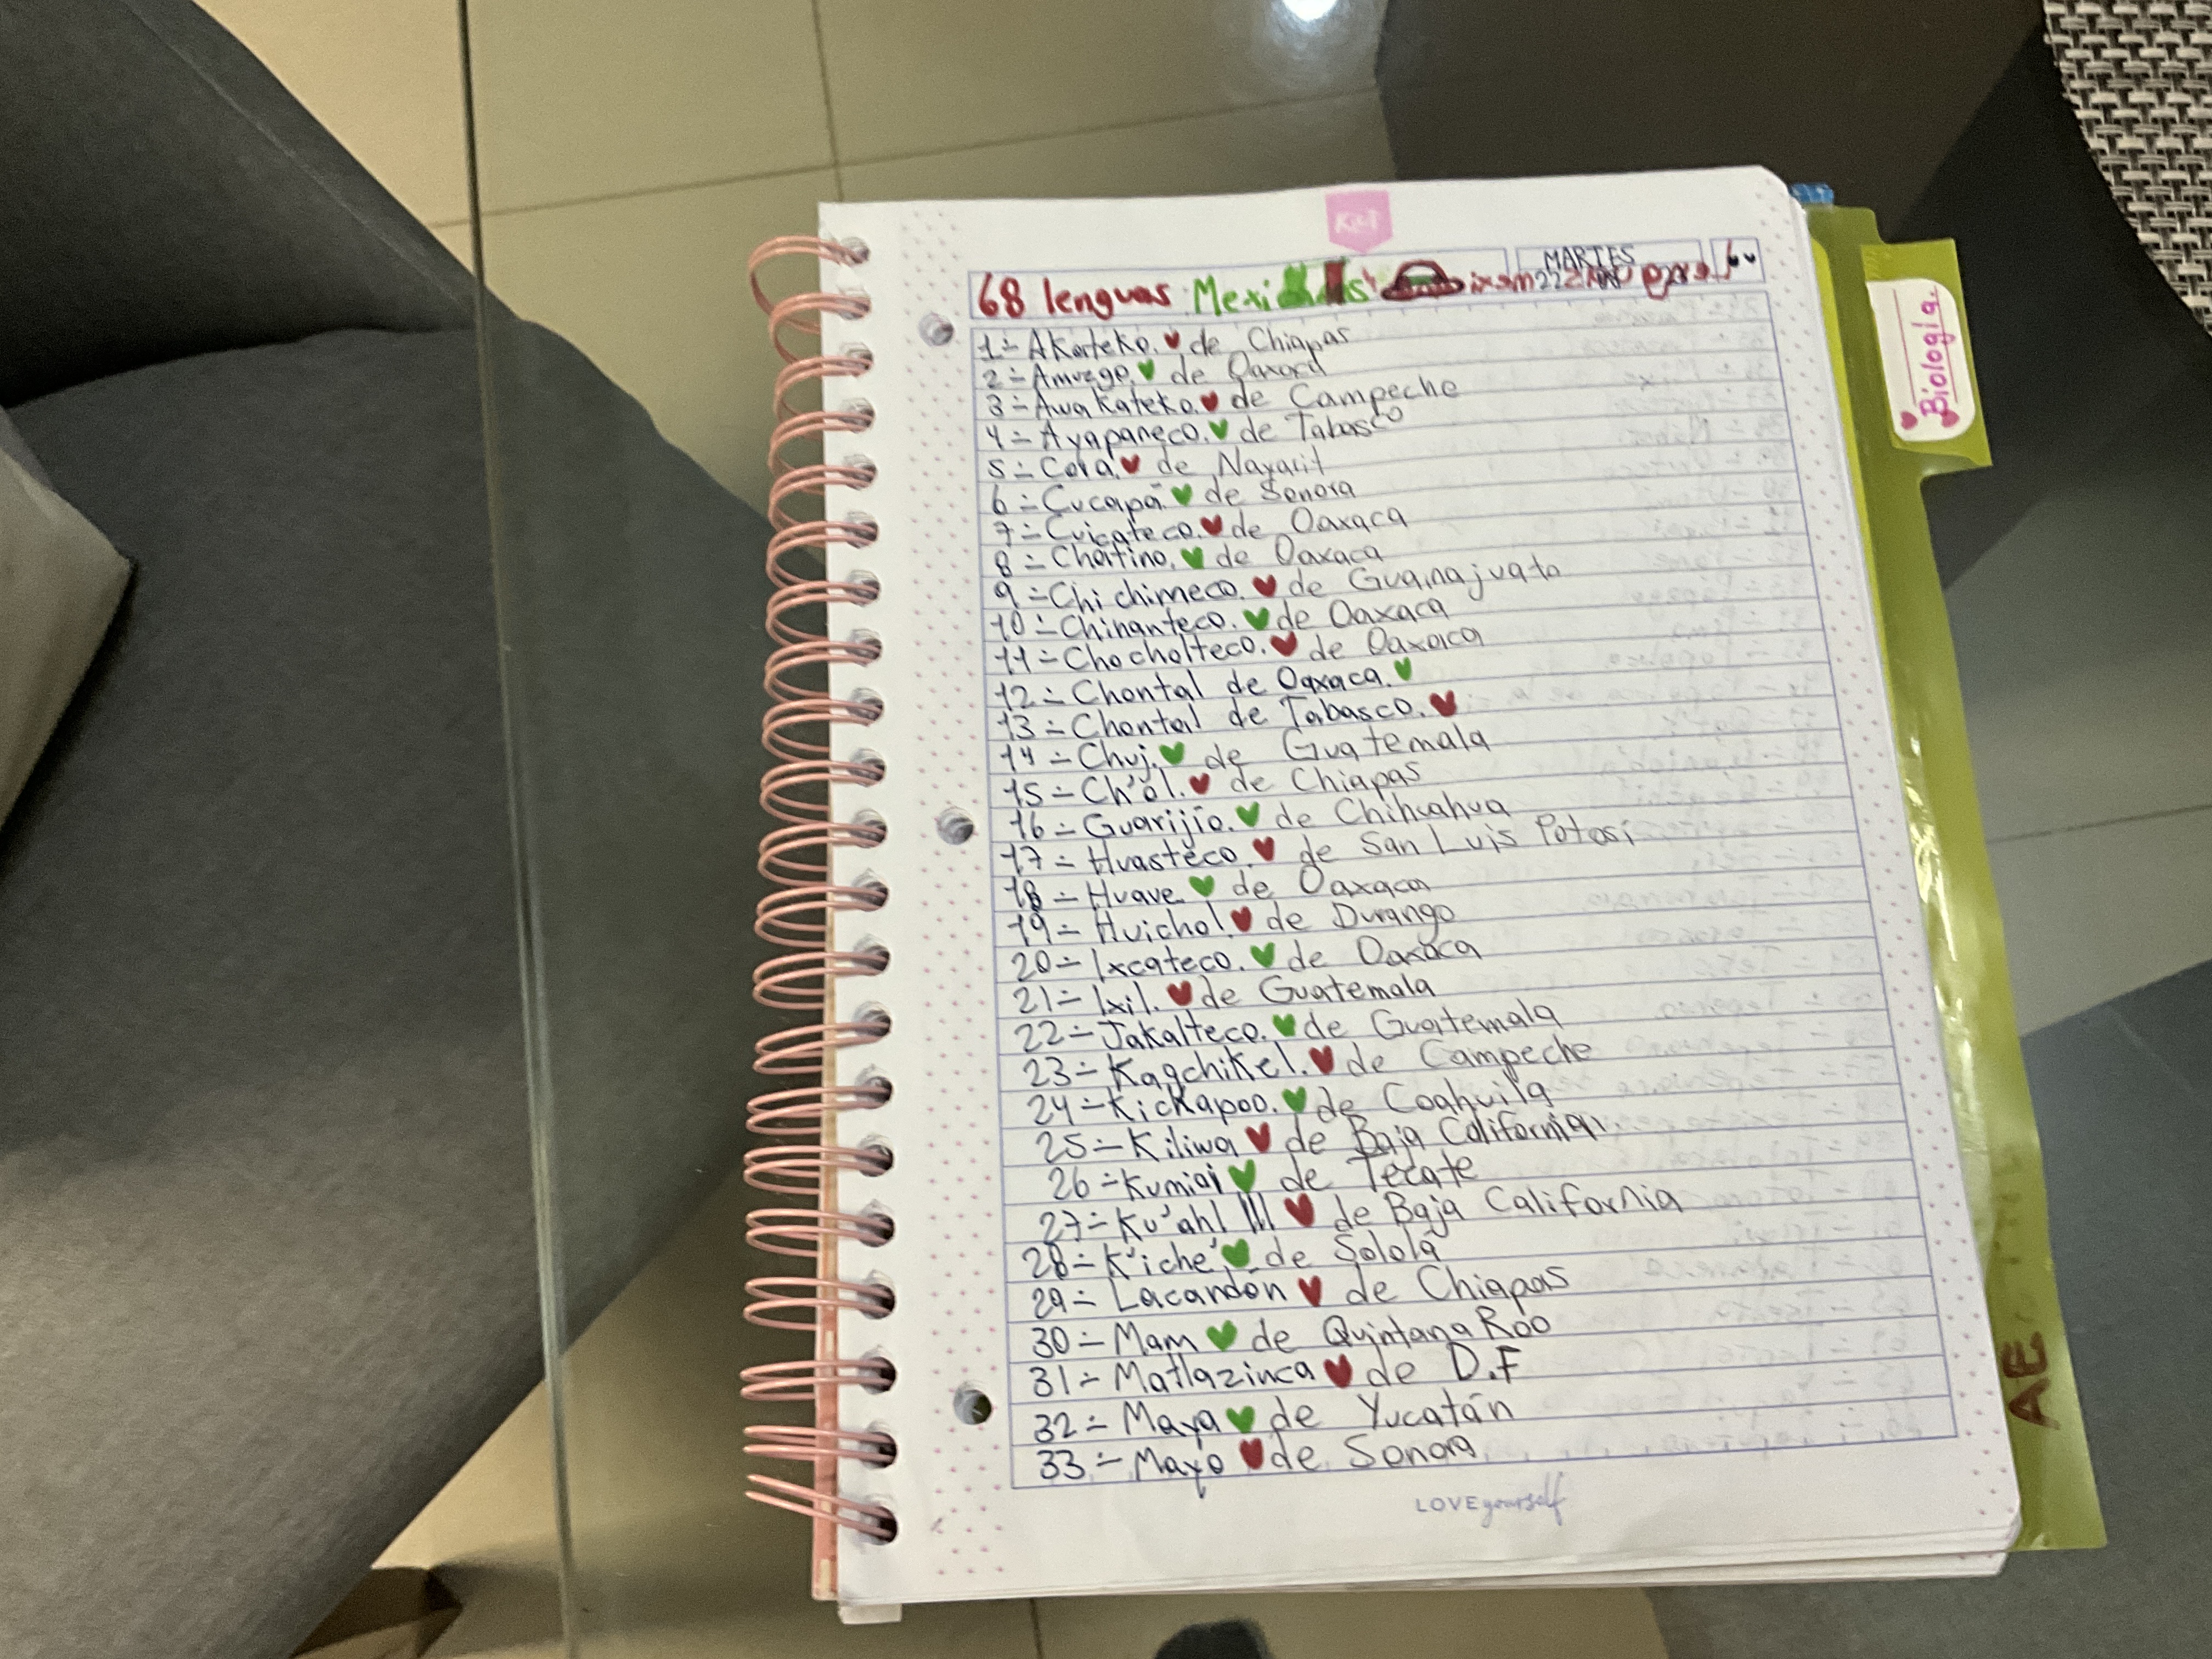 Kiut
MARTES
68 lenguas Mexi
22
1.- Akateko. de Chiapas
2.- Amuzgo. de Oaxaca
3.- Awakateko. de Campeche
4.- Ayapaneco. de Tabasco
5.- Cora. de Nayarit
6.- Cucapá de Sonora
7.- Cuicateco. de Oaxaca
8.- Chatino. de Oaxaca
9.- Chichimeco. de Guanajuato
10.- Chinanteco. de Oaxaca
11.- Chocholteco. de Oaxaca
12.- Chontal de Oaxaca.
13.- Chontal de Tabasco.
14.- Chuj. de Guatemala
15.- Ch'ol. de Chiapas
16.- Guarijío. de Chihuahua
17.- Huasteco. de San Luis Potosi
18.- Huave. de Oaxaca
19.- Huichol. de Durango
20.- Ixcateco. de Oaxaca
21.- Ixil. de Guatemala
22.- Jakalteco. de Guatemala
23.- Kaqchikel. de Campeche
24.- Kickapoo. de Coahuila
25.- Kiliwa de Baja California
26.- Kumiai de Tecate
27.- Ku'ahl de Baja California
28.- K'iche' de Sololá
29.- Lacandón de Chiapas
30.- Mam de Quintana Roo
31.- Matlazinca de D.F
32.- Maya de Yucatán
33.- Mayo de Sonora
LOVE yourself
Biología.
AE